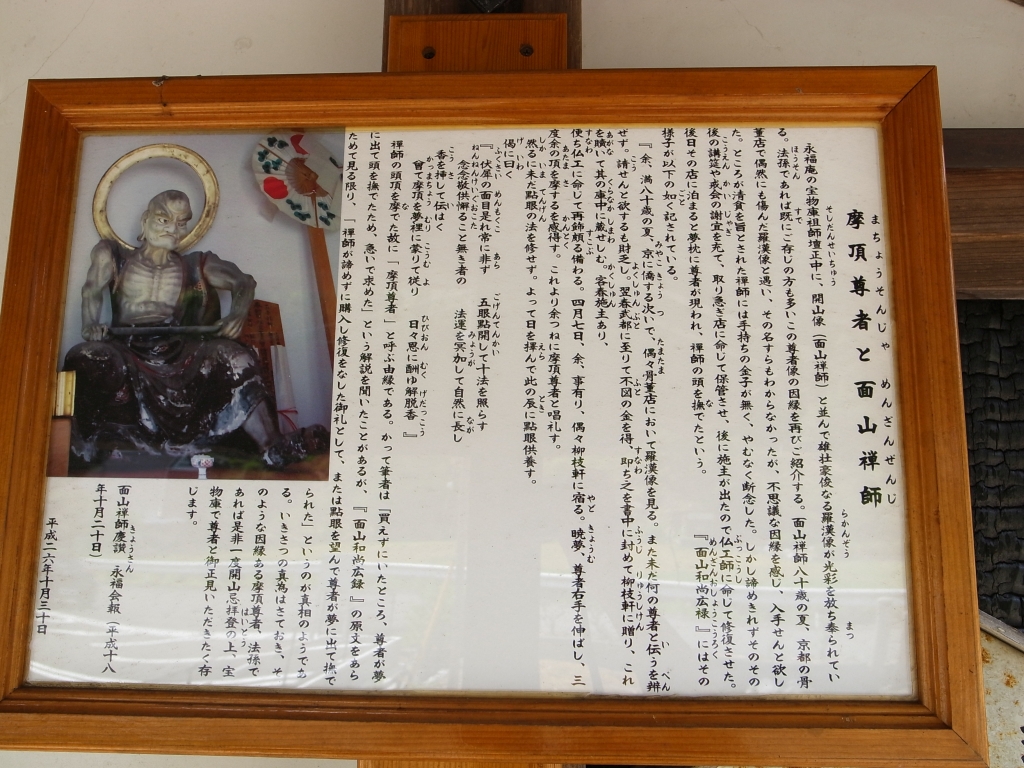 摩頂尊者と面山禅師
永福庵の宝物庫祖師壇正中に、開山像（面山禅師）と並んで雄壮豪俊なる羅漢像が光彩を放ち奉られてい
る。法孫であれば既にご存じの方も多いこの尊者像の因縁を再びご紹介する。面山禅師八十歳の夏、京都の骨
董店で偶然にも傷んだ羅漢像と遇い、その名すらもわからなかったが、不思議な因縁を感じ、入手せんと欲し
た。ところが清貧を旨とされた禅師には手持ちの金子が無く、やむなく断念した。しかし諦めきれずそのその
後の講筵や戒会の謝宜を充て、取り急ぎ店に命じて保管させ、後に施主が出たので仏工師に命して修復させた。
後日その店に泊まると夢枕に尊者が現われ、禅師の頭を撫でたという。　『面山和尚広禄』にはその
様子が以下の如く記されている。
『余、満八十歳の夏、京に僑する次いで、偶々骨董店において羅漢像を見る。また未だ何の尊者と伝うを辨
ぜず。請せんと欲するも財乏し。翌春武都に至りて不図の金を得、即ち之を書中に封めて柳枝軒に贈り、これ
を贖いて其の庫中に蔵せしむ。客春施主あり、
便ち仏工に命じて再飾頗る備わる。四月七日、余、事有り、偶々柳枝軒に宿る。暁夢、尊者右手を伸ばし、三
度余の頂を摩するを感得す。これより余つねに摩頂尊者と唱礼す。
然るに未だ點眼の法を修せず。よって日を擇んで此の辰に點眼供養す。
偈に曰く
『伏犀の面目是れ常に非ず　五眼點開して十法を照らす
念念敬供懈ること無き者の　法運を冥加して自然に長し
香を挿して伝はく
曾て摩頂を夢裡に蒙りて従り　日々恩に酬ゆ解脱香　』
禅師の頭頂を摩でた故に「摩頂尊者」と呼ぶ由縁である。かって筆者は「買えずにいたところ、尊者が夢
に出て頭を撫でたため、急いで求めた」という解説を聞いたことがあるが、『面山和尚広録』の原文をあら
ためて見る限り、「禅師が諦めずに購入し修復をなした御礼として、または點眼を望んで尊者が夢に出て撫で
られた」というのが真相のようであ
る。いきさつの真為はさておき、そ
のような因縁ある摩頂尊者、法孫で
あれば是非一度開山忌拝登の上、宝
物庫で尊者と御正見いただきたく存
じます。
面山禅師慶讃　永福会報（平成十八
年十月二十日）
平成二六年十月三十日